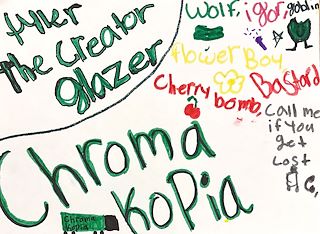 tyler
the creator
glazer
Wolf, igor, goblin
flower Boy
Cherry bomb, Bastard
Call me
if you
get
lost
Chroma
Kopia
Chroma
Kopia